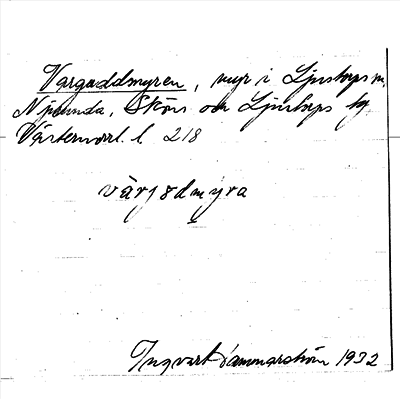 Vargøddmyren, myr i Ljustorps sn,
Njurunda, Sköns och Ljustorps tg
Västernorrl. l. 218
vàrjødmyra
Ingvart Hammarström 1932